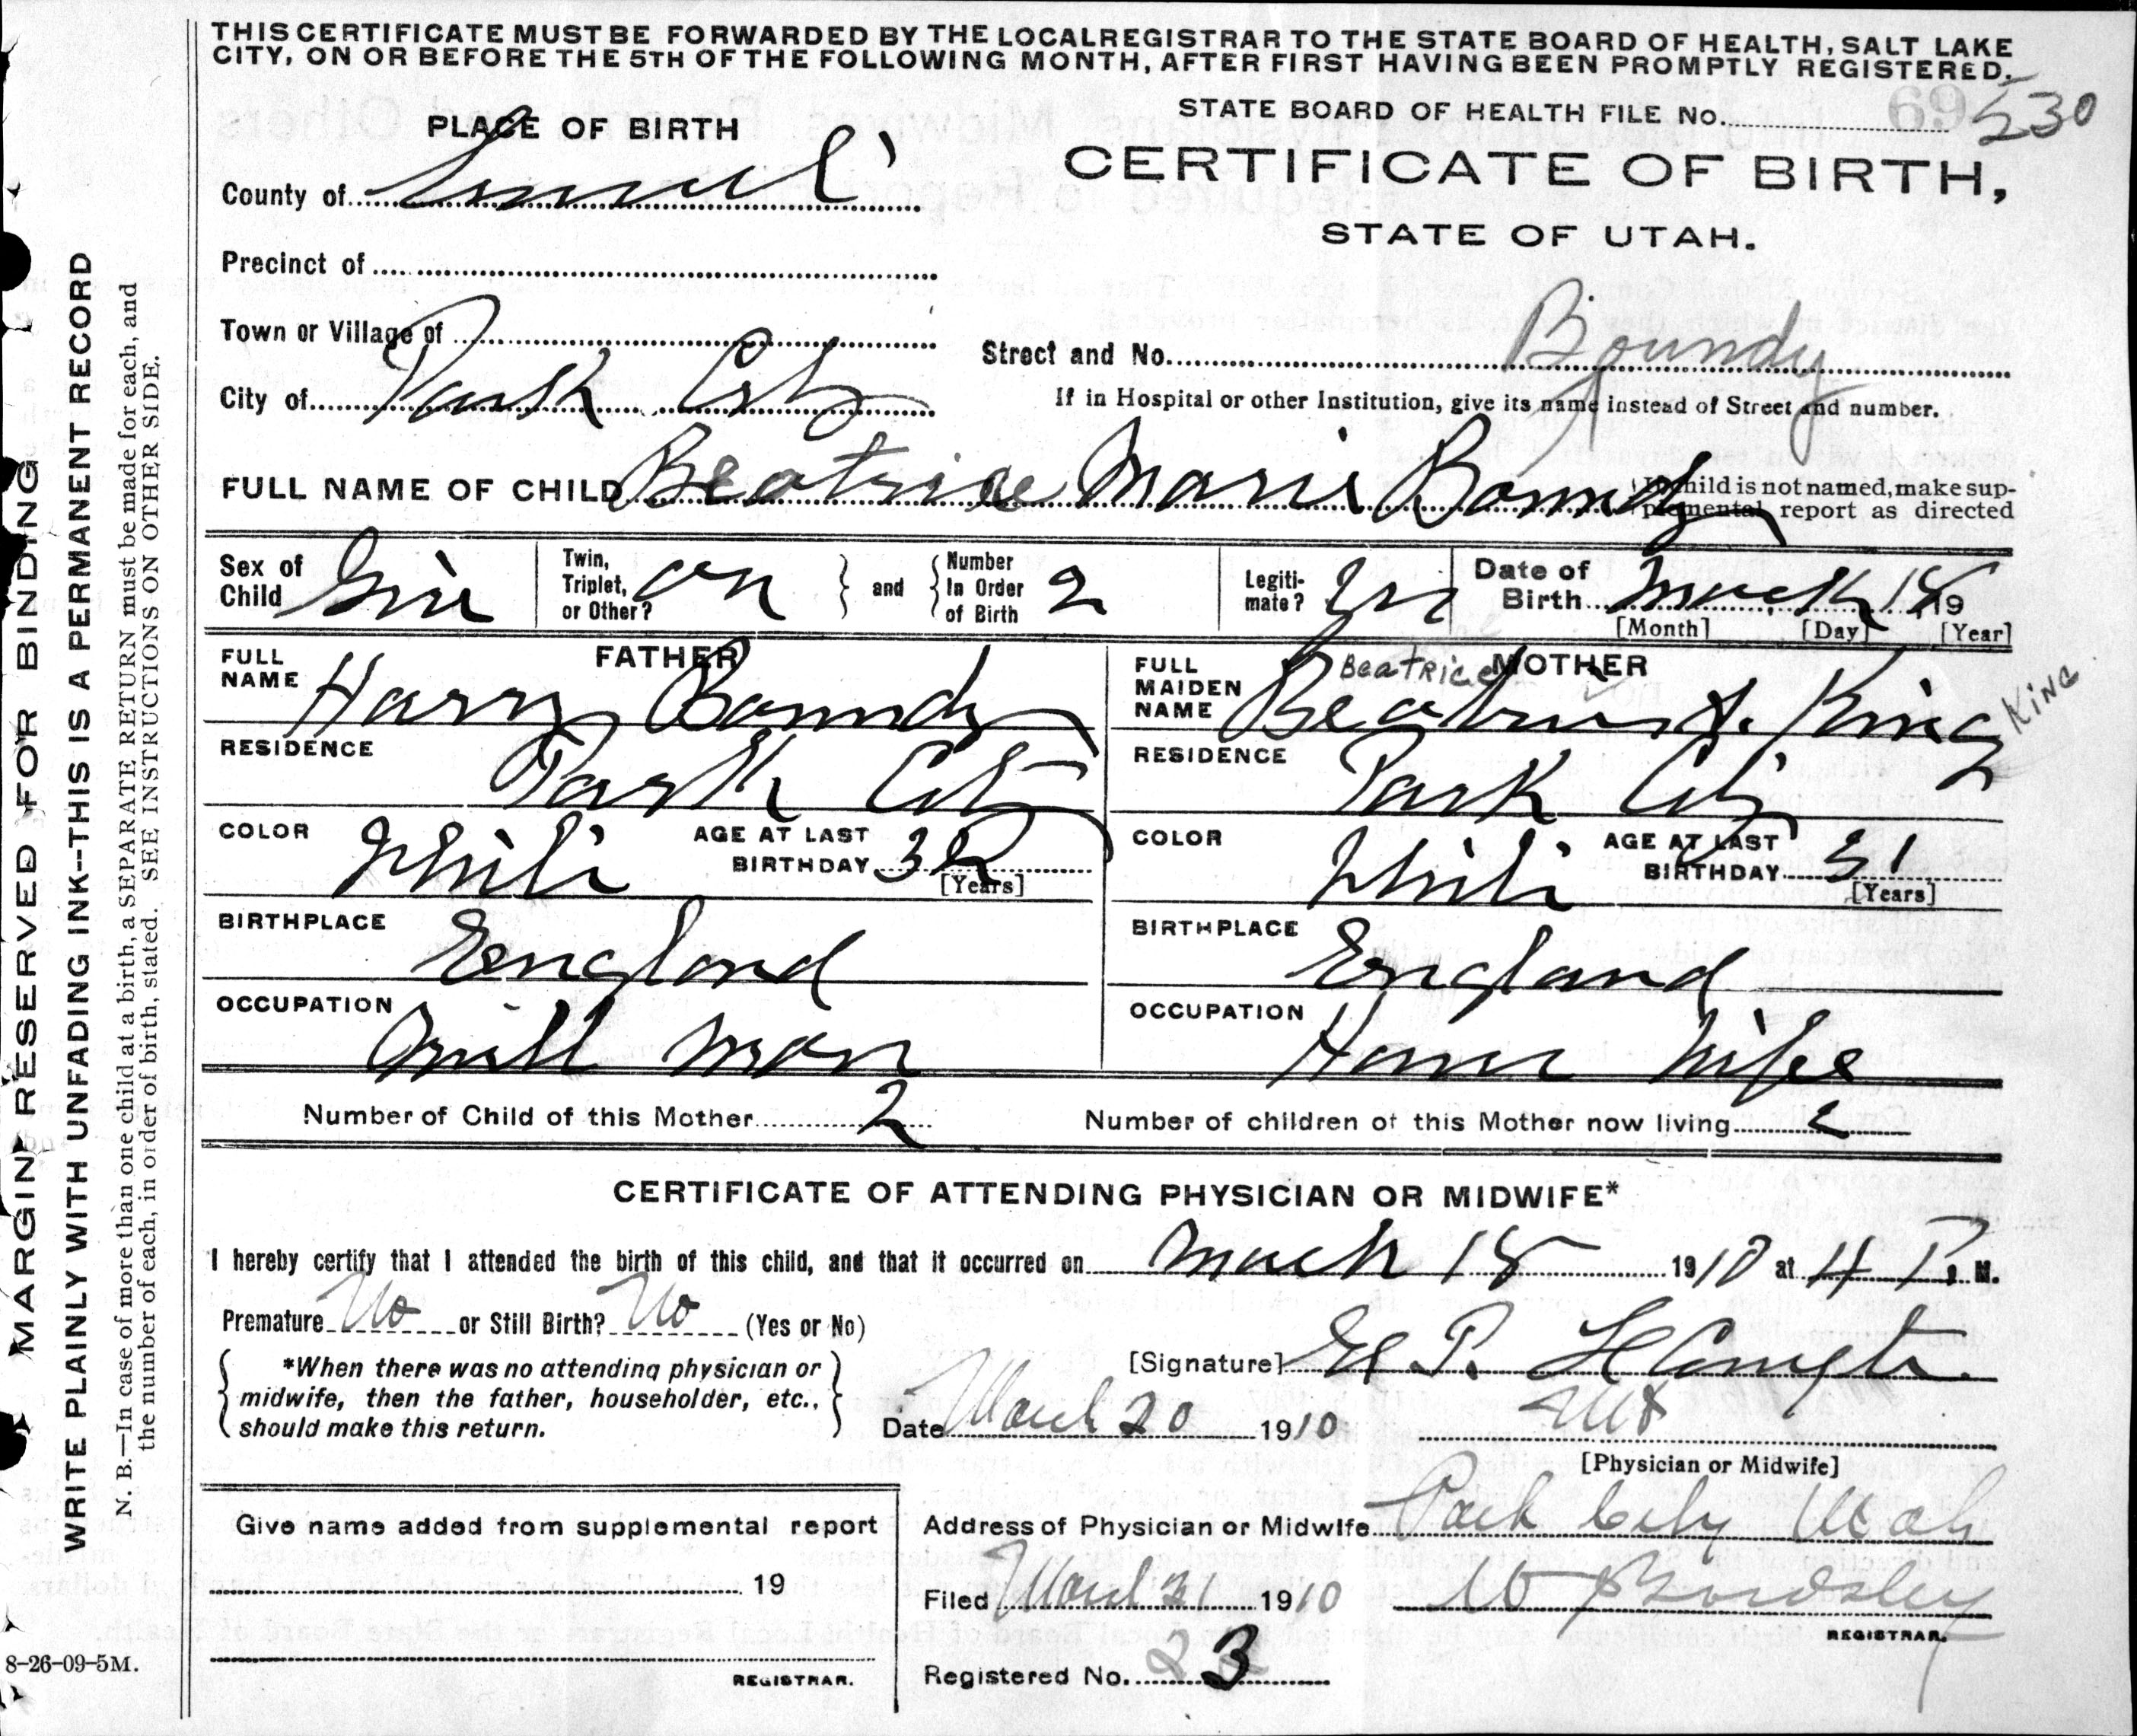 THIS CERTIFICATE MUST BE FORWARDED BY THE LOCAL REGISTRAR TO THE STATE BOARD OF HEALTH, SALT LAKE
CITY, ON OR BEFORE THE 5TH OF THE FOLLOWING MONTH, AFTER FIRST HAVING BEEN PROMPTLY REGISTERED.
STATE BOARD OF HEALTH FILE No. 69 530
PLACE OF BIRTH
CERTIFICATE OF BIRTH,
STATE OF UTAH.
County of
Precinct of
Town or Village of
City of Park City
Street and No. Boundy
If in Hospital or other Institution, give its name instead of Street and number.
FULL NAME OF CHILD Beatrice Marie Boundy
If child is not named, make sup-
plemental report as directed
Sex of Child
Twin, Triplet, or Other? on
and
Number In Order of Birth 2
Legiti-mate?
Date of Birth March 18 19
[Month] [Day] [Year]
FATHER
FULL NAME Harry Boundy
RESIDENCE Park City
COLOR White
AGE AT LAST BIRTHDAY 32
[Years]
BIRTHPLACE England
OCCUPATION Mill man
MOTHER
Beatrice
FULL MAIDEN NAME Beatrice A. King
King
RESIDENCE Park City
COLOR White
AGE AT LAST BIRTHDAY 31
[Years]
BIRTHPLACE England
OCCUPATION House Wife
Number of Child of this Mother 2
Number of children of this Mother now living 2
CERTIFICATE OF ATTENDING PHYSICIAN OR MIDWIFE*
I hereby certify that I attended the birth of this child, and that it occurred on March 18 1910 at 4 P. M.
Premature No or Still Birth? No (Yes or No)
*When there was no attending physician or
midwife, then the father, householder, etc.,
should make this return.
[Signature] E. P. LeCompte.
Date March 20 1910
MD
[Physician or Midwife]
Give name added from supplemental report
19
REGISTRAR.
Address of Physician or Midwife Park City Utah
Filed March 31 1910
REGISTRAR.
Registered No. 3
8-26-09-5M.
MARGIN RESERVED FOR BINDING
WRITE PLAINLY WITH UNFADING INK--THIS IS A PERMANENT RECORD
N. B.—In case of more than one child at a birth, a SEPARATE RETURN must be made for each, and
the number of each, in order of birth, stated. SEE INSTRUCTIONS ON OTHER SIDE.